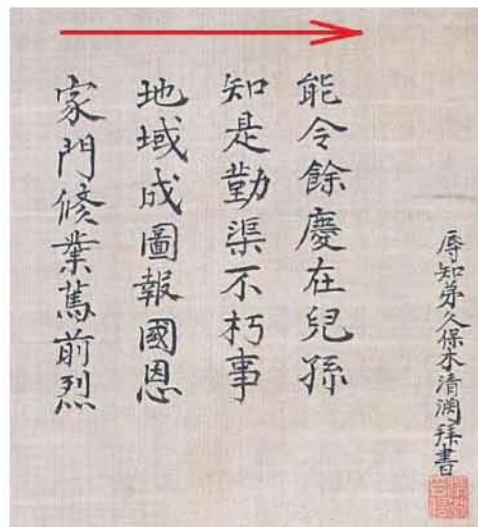 家門修業篤前烈
地域成圖報國恩
知是勤渠不朽事
能令餘慶在兒孫
辱知弟久保木清渕拜書